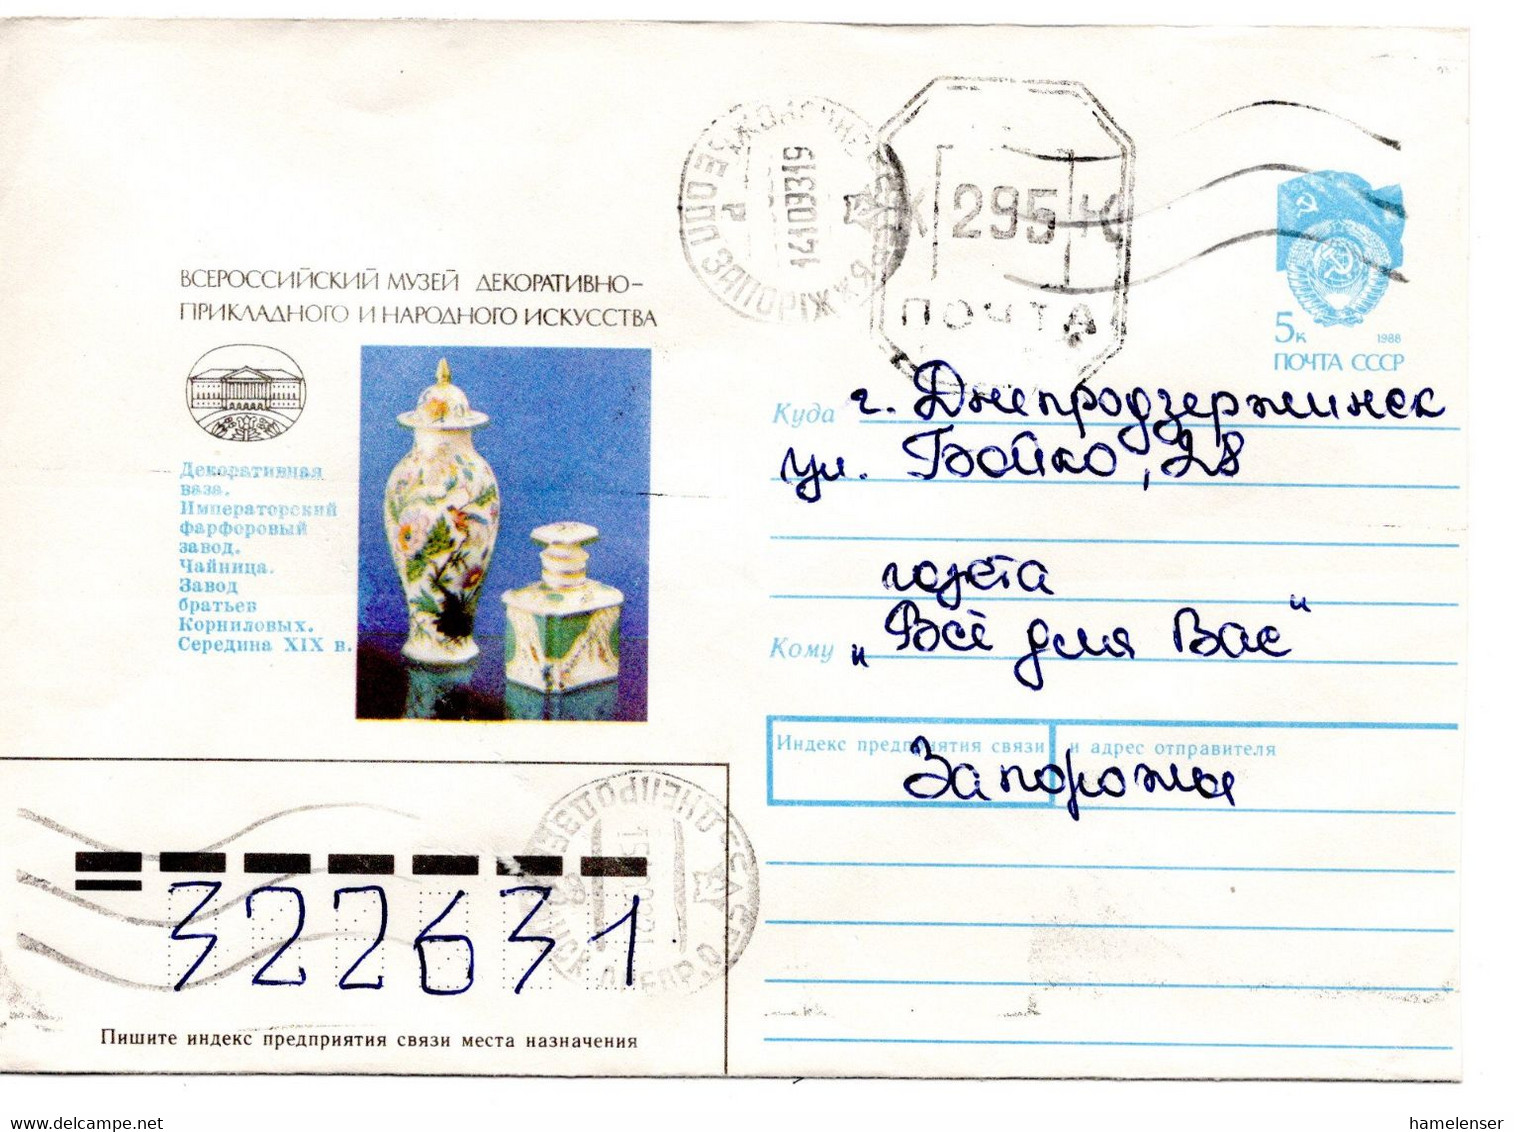 ВСЕРОССИЙСКИЙ МУЗЕЙ ДЕКОРАТИВНО-
ПРИКЛАДНОГО И НАРОДНОГО ИСКУССТВА
Декоративная
ваза.
Императорский
фарфоровый
завод.
Чайница.
Завод
братьев
Корниловых.
Середина XIX в.
ЗАПОРІЖЖЯ
14109319
295
ПОЧТА
5к
1988
ПОЧТА СССР
Куда г. Днепродзержинск
ул. Бойко, 28
газета
Кому "Всё для Вас"
Индекс предприятия связи и адрес отправителя
Запорожье
322631
Пишите индекс предприятия связи места назначения
hamelenser